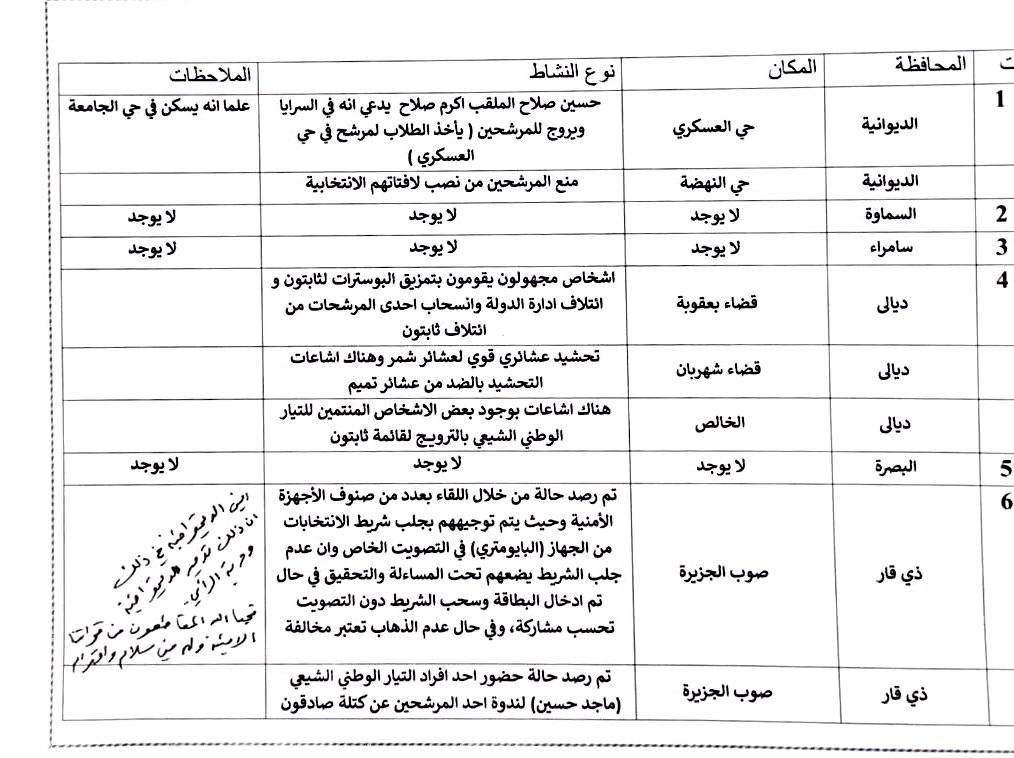 ت المحافظة المكان نوع النشاط الملاحظات
1 الديوانية حي العسكري حسين صلاح الملقب اكرم صلاح يدعي انه في السرايا علما انه يسكن في حي الجامعة
ويروج للمرشحين ( يأخذ الطلاب لمرشح في حي
العسكري )
الديوانية حي النهضة منع المرشحين من نصب لافتاتهم الانتخابية
2 السماوة لا يوجد لا يوجد لا يوجد
3 سامراء لا يوجد لا يوجد لا يوجد
4 ديالى قضاء بعقوبة اشخاص مجهولون يقومون بتمزيق البوسترات لثابتون و
ائتلاف ادارة الدولة وانسحاب احدى المرشحات من
ائتلاف ثابتون
ديالى قضاء شهربان تحشيد عشائري قوي لعشائر شمر وهناك اشاعات
التحشيد بالضد من عشائر تميم
ديالى الخالص هناك اشاعات بوجود بعض الاشخاص المنتمين للتيار
الوطني الشيعي بالترويج لقائمة ثابتون
5 البصرة لا يوجد لا يوجد لا يوجد
6 ذي قار صوب الجزيرة تم رصد حالة من خلال اللقاء بعدد من صنوف الأجهزة
الأمنية وحيث يتم توجيههم بجلب شريط الانتخابات
من الجهاز (البايومتري) في التصويت الخاص وان عدم
جلب الشريط يضعهم تحت المساءلة والتحقيق في حال
تم ادخال البطاقة وسحب الشريط دون التصويت
تحسب مشاركة، وفي حال عدم الذهاب تعتبر مخالفة
اين الديمقراطية في ذلك
ان ذلك تدمير للديمقراطية
وحرية الرأي.
فحيا الله المقاطعون من قواتنا
الامنية ولهم مني سلام واحترام
ذي قار صوب الجزيرة تم رصد حالة حضور احد افراد التيار الوطني الشيعي
(ماجد حسين) لندوة احد المرشحين عن كتلة صادقون